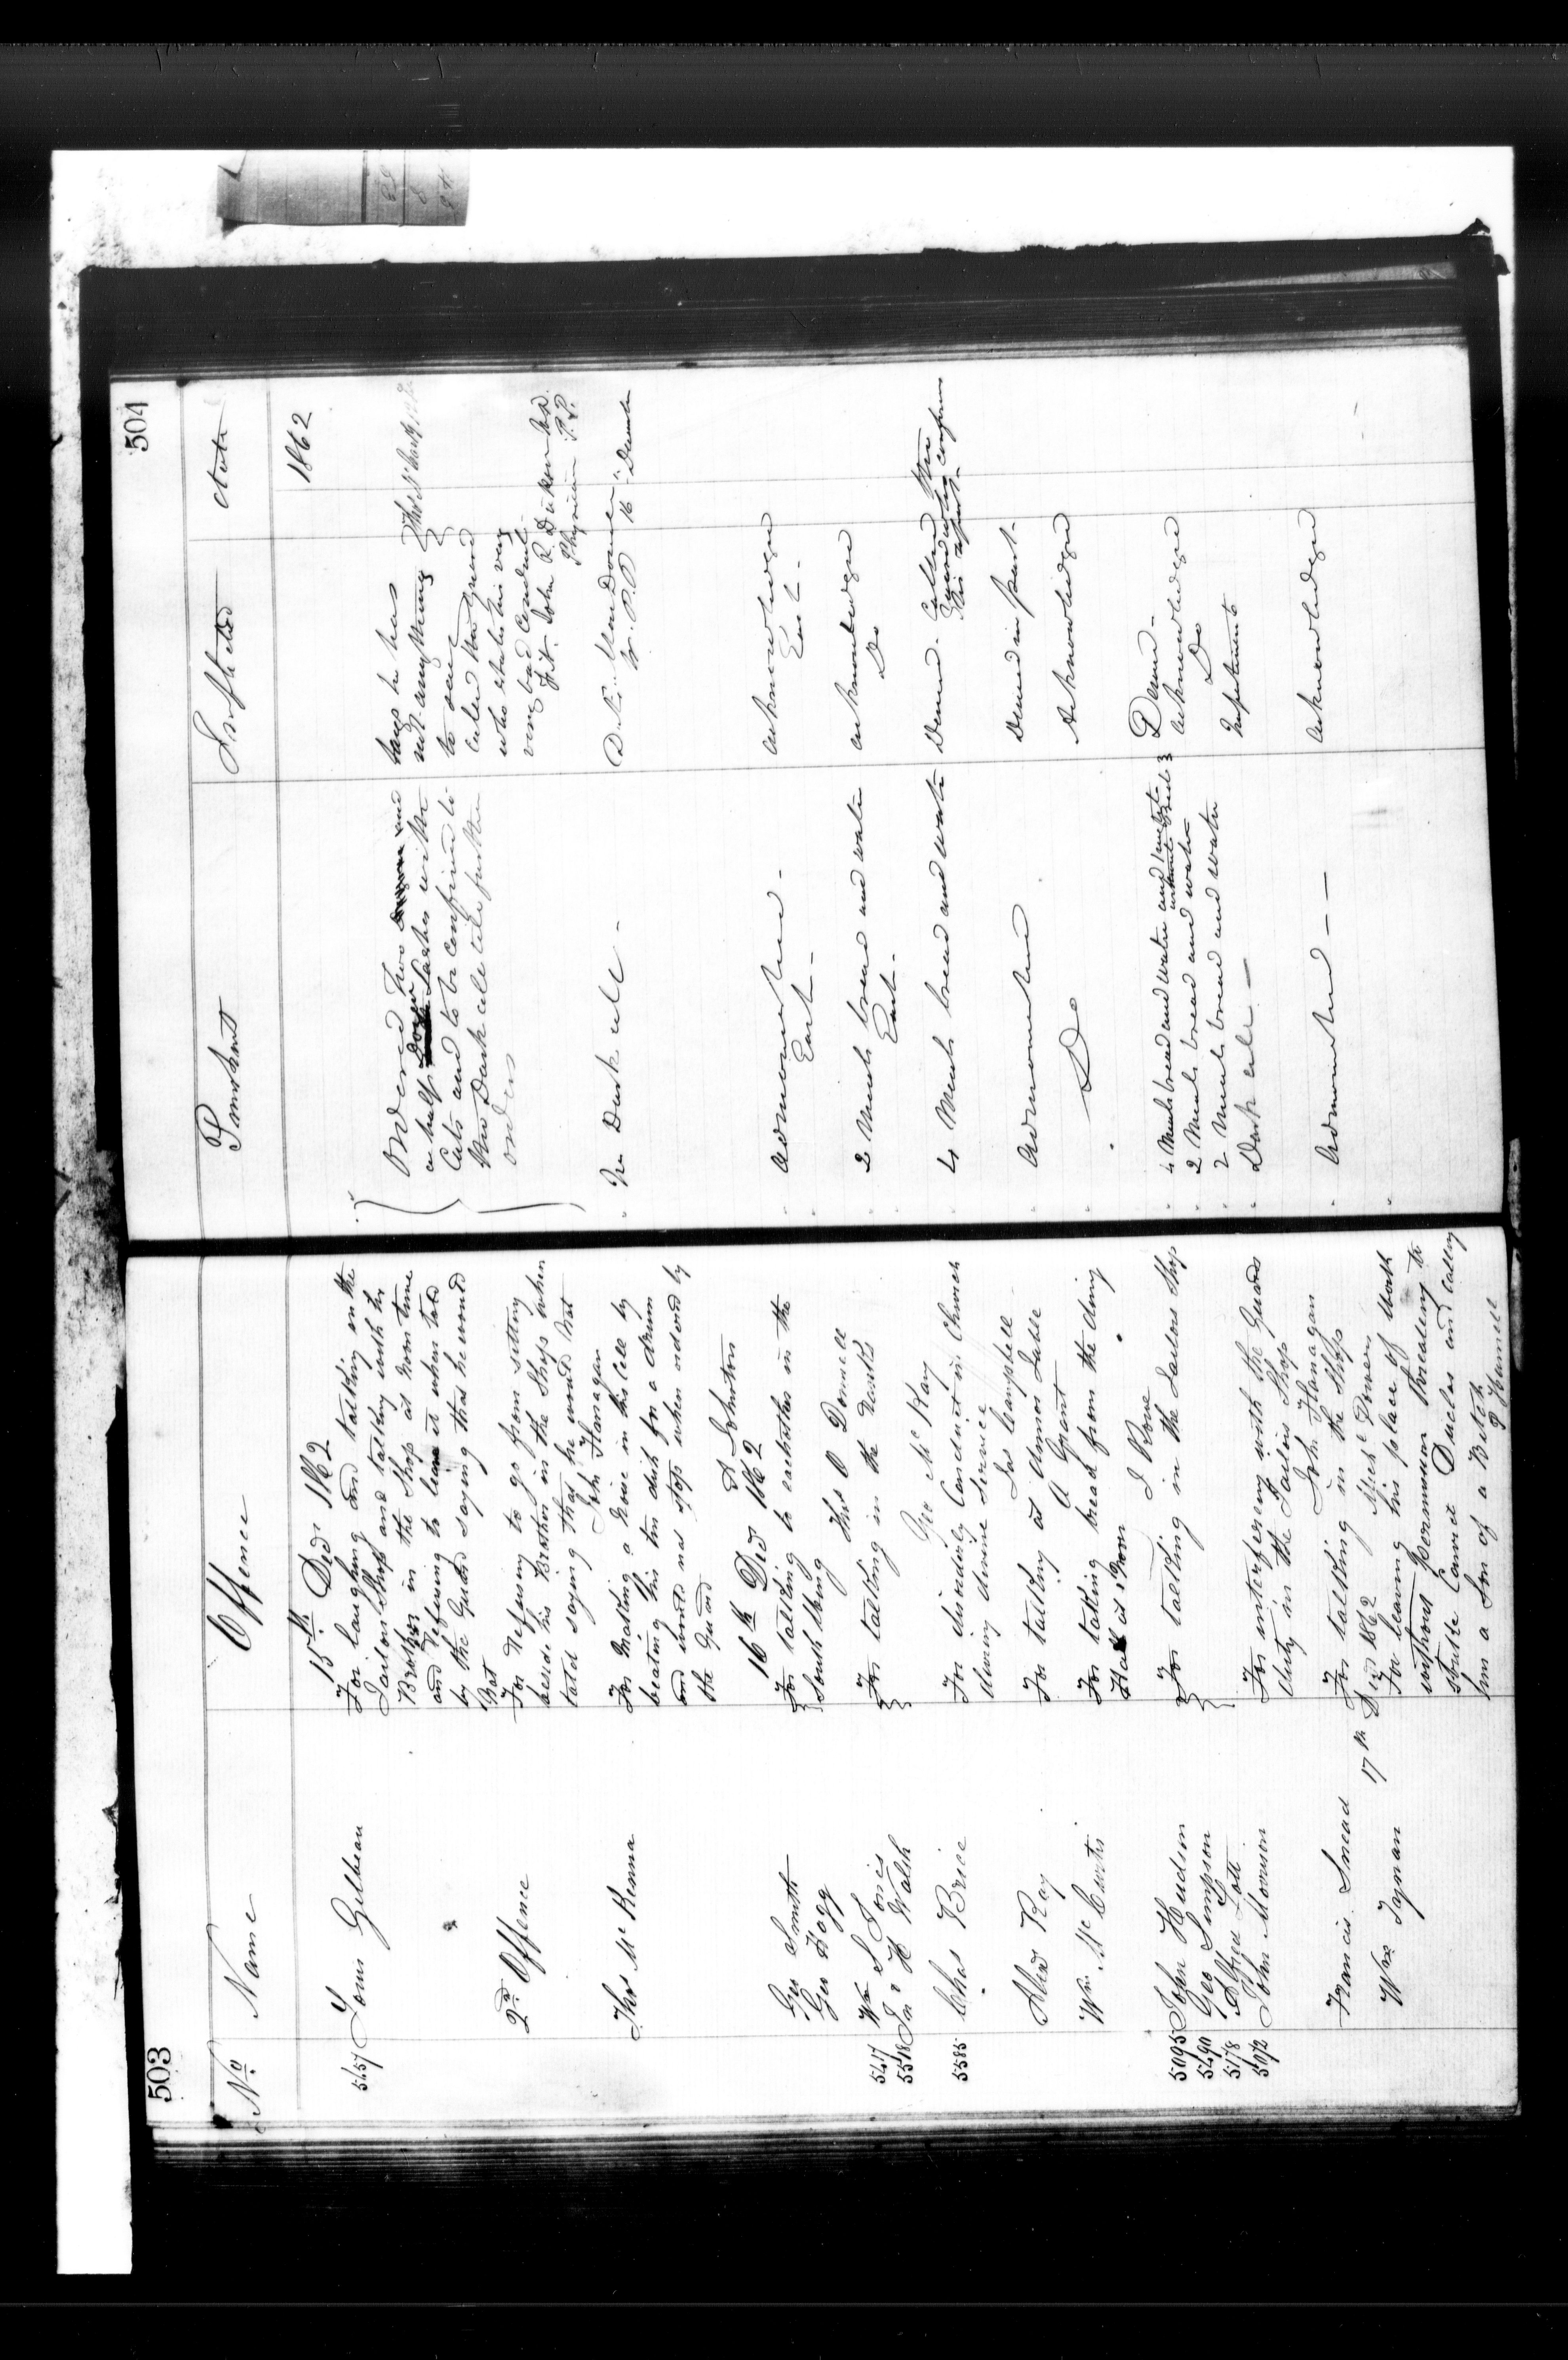 503
No Name Offence
15th Decr 1862
5457 Louis Gilbeau
For laughing and talking in the
Tailor Shop and talking with his
Brother in the Shop at Noon time
and Refusing to leave it when told
by the Guard saying that he would
Not
2nd Offence
For Refusing to go from sitting
beside his Brother in the Shop when
told saying that he would Not
John Flanagan
Thos McKenna
For Making a Noise in his Cell by
beating his tin dish for a drum
and would not stop when ordered by
the Guard
A Johnston
16th Decr 1862
Geo Smith
Geo Hogg
For talking to eachother in the
South Wing
Thos O Donnell
5417 Wm S Jones
5518 Jno H Walsh
For talking in the Ranks
Geo McKay
5585 Chas Brice
For disorderly Conduct in Church
during divine Service
Jas Campbell
Alexr Ray
For talking at dinner Table
A Grant
Wm McCurtis
For taking bread from the dining
Hall at Noon
J Rowe
5095 John Hudson
5490 Geo Simpson
5178 Alfred Lott
For talking in the Tailors Shop
5072 John Morrison
For interfering with the Guards
duty in the Tailors Shop
John Flanagan
Francis Snead
For talking in the Shop
Michl Power
17th Decr 1862
Wm Tayman
For leaving his place of Work
without Permission threatening to
strike Convict Duclos and calling
him a Son of a Bitch
P Hamell
504
Punishment Inspected date
1862
Ordered two and
a half Dozen Lashes with the
Cats and to be confined to
the Dark cell till further
orders
Says he has
not anything
to say
Called the Guard
who states his very
very bad conduct
Fit. John R. Dickson MD.
Physician P.P.
In Dark cell -
D. Æ. MacDonell
W. P.P. 16 December
Admonished -
East -
acknowledged
East -
2 Meals bread and water
East -
acknowledged
Do
4 Meals bread and water
Denied. Called the
Guard who confirms
his report -
Admonished
Denied in part -
Do
Acknowledged
4 Meals bread and water and
without bed 3
Denied -
2 Meals bread and water
acknowledged
2 Meals bread and water
Do
Dark cell -
Admonished - -
acknowledged